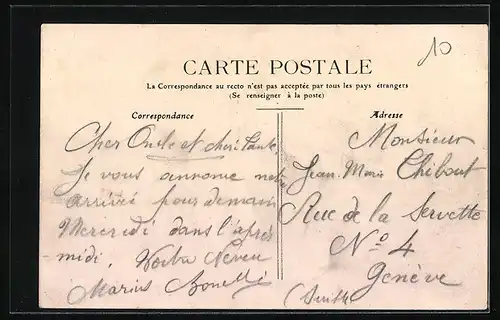 10
CARTE POSTALE
La Correspondance au recto n'est pas acceptée par tous les pays étrangers
(Se renseigner à la poste)
Correspondance
Adresse
Cher Oncle et cheri Tante
Je vous annonce notre
arrivée pour demain
Mercredi dans l'après
-midi. Votre Neveu
Marius
Monsieur
Jean-Marie Chibout
Rue de la Servette
No 4
Genève
(Suisse